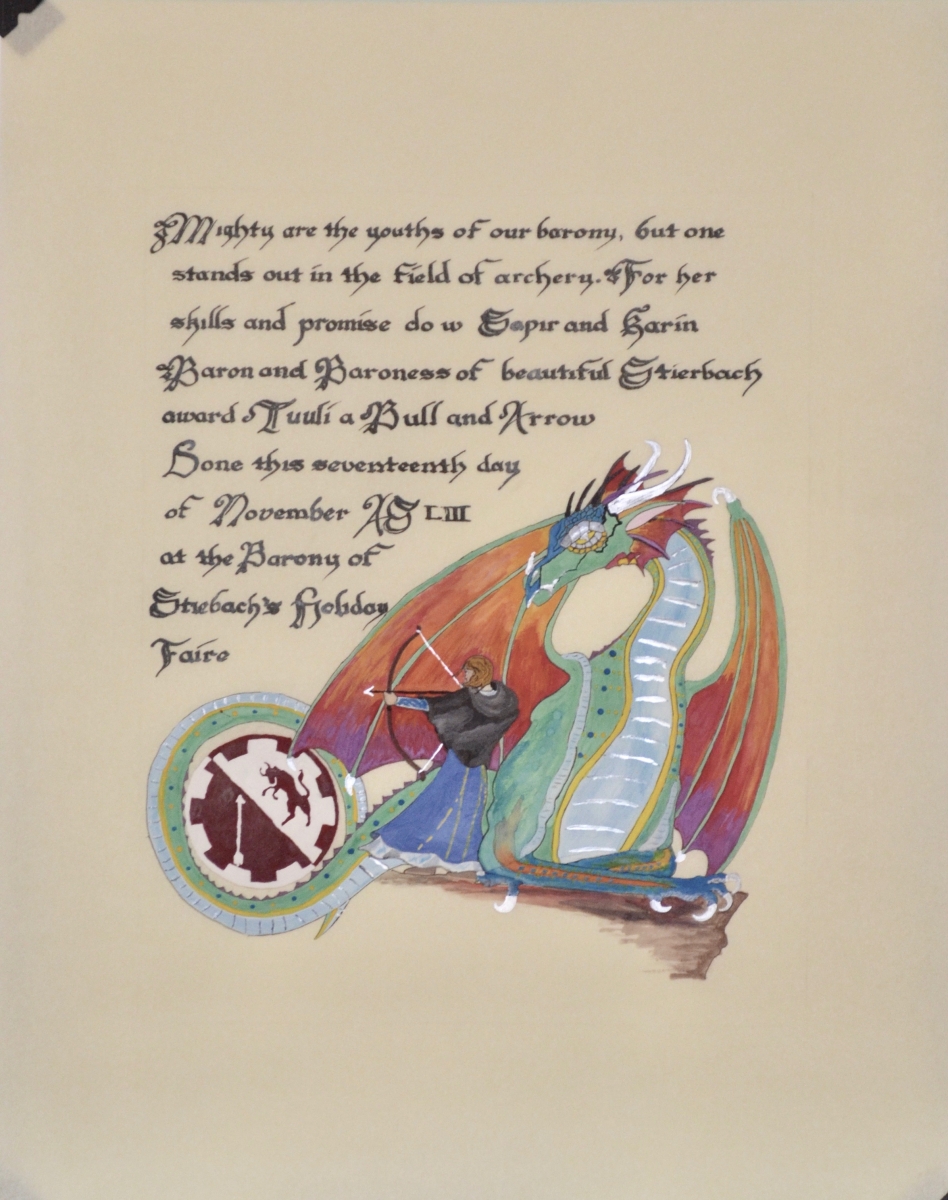 Mighty are the youths of our barony, but one
stands out in the field of archery. For her
skills and promise do w Sapir and Karin
Baron and Baroness of beautiful Stierbach
award Tuuli a Bull and Arrow
Done this seventeenth day
of November AS LIII
at the Barony of
Stiebach's Holiday
Faire